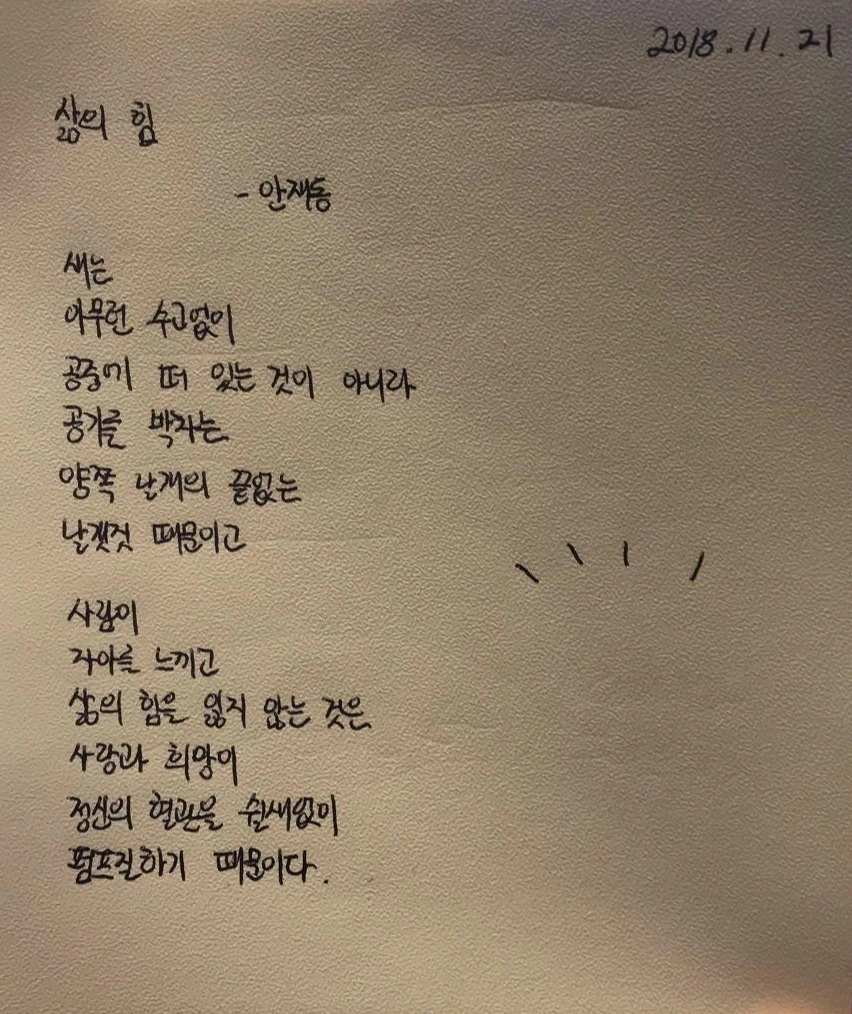 2018.11.21
삶의 힘
- 안재동
새는
아무런 수고없이
공중에 떠 있는 것이 아니라
공기를 박차는
양쪽 날개의 끝없는
날갯짓 때문이고
사람이
자아를 느끼고
삶의 힘을 잃지 않는 것은
사랑과 희망이
정신의 혈관을 쉴새없이
펌프질하기 때문이다.